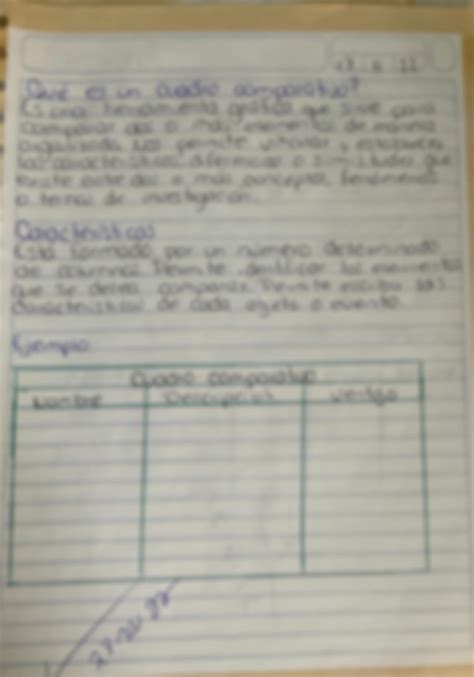 Qué es un cuadro comparativo?
Es una herramienta gráfica que sirve para
comparar dos o más elementos de manera
organizada. Nos permite y establecer
las características, diferencias o similitudes que
entre dos o más conceptos, fenómenos
o temas de investigación.
Características
Está formado por un número determinado
de columnas. Permite identificar los elementos
que se desea comparar. Permite escribir las
características de cada objeto o evento.
Ejemplo
Cuadro comparativo
Nombre Descripción